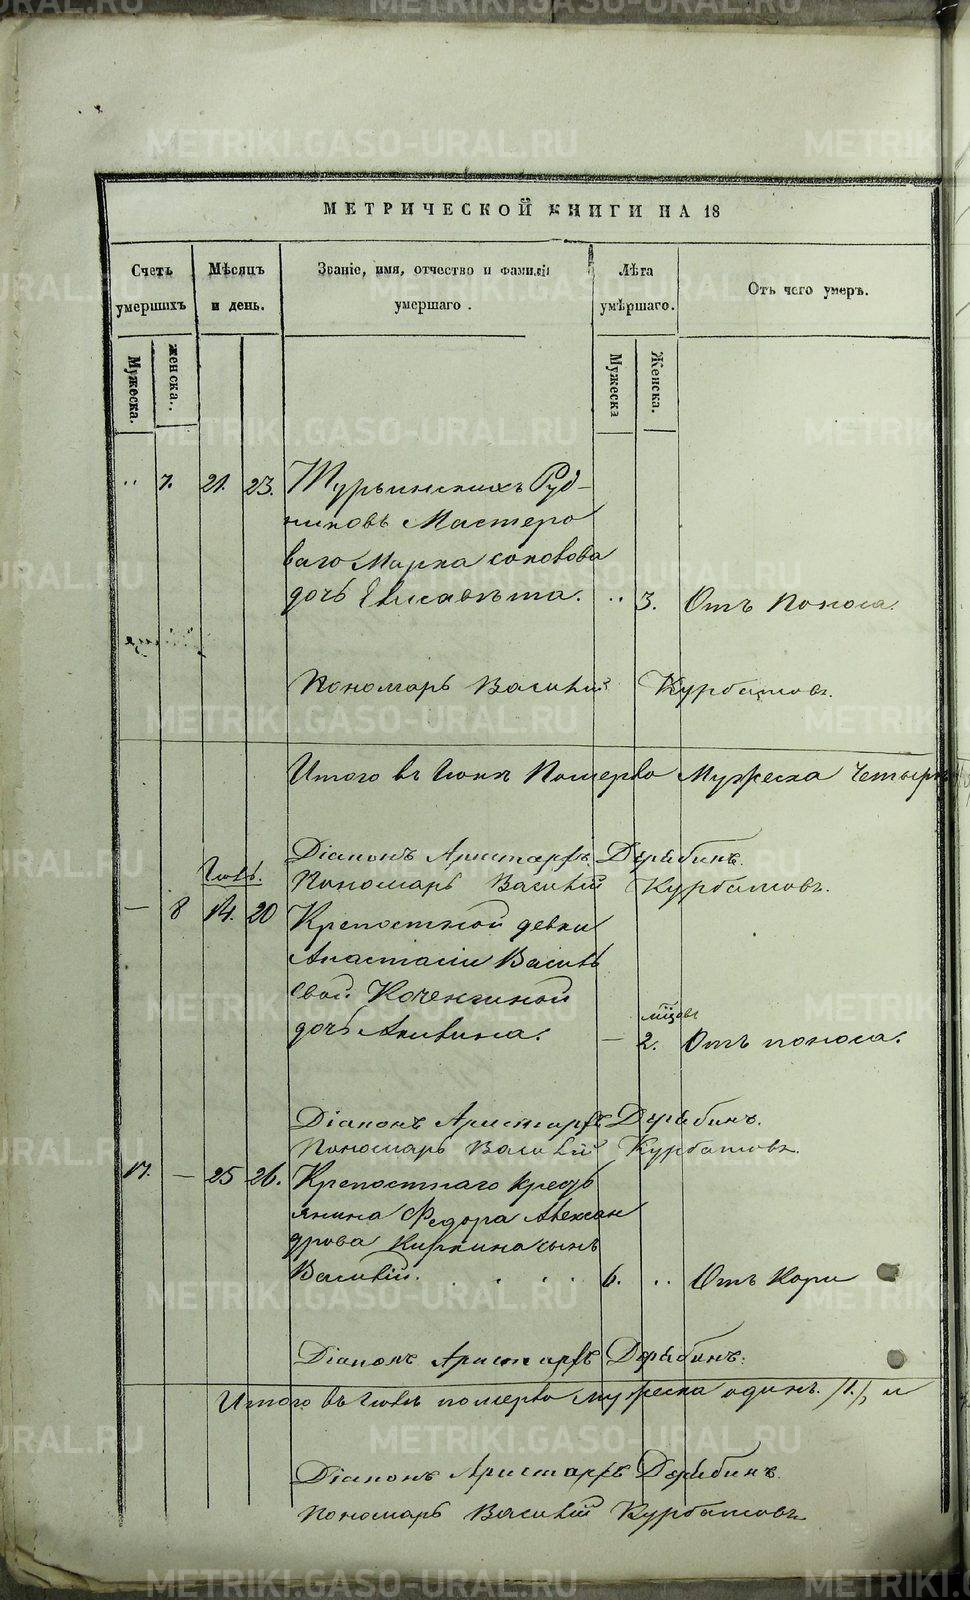 METRIKI.GASO-URAL.RU
МЕТРИЧЕСКОЙ КНИГИ НА 18
Счетъ умершихъ
Мѣсяцъ и день.
Званіе, имя, отчество и фамилія умершаго.
Лѣта умершаго.
Отъ чего умеръ.
Мужеска.
женска..
Мужеска
Женска.
" 7. 21. 23. Турьинскихъ Руд-
никовъ Мастеро
ваго Марка
дочь Елисавѣта. " 3. Отъ Поноса.
Пономарь Василій Курбатовъ.
Итого въ Іюнѣ Померло Мужеска Четыре
Діаконъ Аристархъ Дерябинъ.
Пономарь Василій Курбатовъ.
Іюль.
— 8 14. 20 Крепостной девки
Анастасіи Василь
евой
дочь Акилина. — мцовъ 2. Отъ поноса.
Діаконъ Аристархъ Дерябинъ.
Пономарь Василій Курбатовъ.
17. — 25 26. Крепостнаго кресть
янина Федора Алексан
дрова Киркина сынъ
Василій. . . . . 6. " Отъ Кори
Діаконъ Аристархъ Дерябинъ.
Итого въ Іюлѣ померло мужеска одинъ /1./, и
Діаконъ Аристархъ Дерябинъ.
Пономарь Василій Курбатовъ